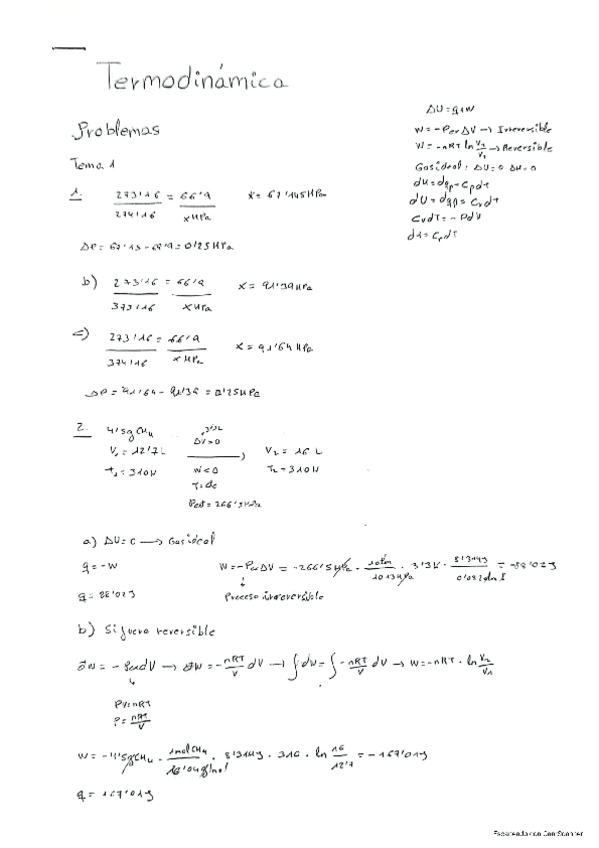 Termodinámica
ΔU = q+W
W = -Pex ΔV → Irreversible
W = -nRT ln V2/V1 → Reversible
Gas ideal: ΔU=0 ΔH=0
dH = dqp = CpdT
dU = dqp = CvdT
CvdT = -PdV
dH = CpdT
Problemas
Tema 1
1. 273'16 / 274'16 = 66'9 / x HPa x = 67'145 HPa
ΔP = 67'15 - 66'9 = 0'25 HPa
b) 273'16 / 373'16 = 66'9 / x HPa x = 91'39 HPa
c) 273'16 / 374'16 = 66'9 / x HPa x = 91'64 HPa
ΔP = 91'64 - 91'39 = 0'25 HPa
2. 4'5g CH4
V1 = 12'7 L ΔV>0 → V2 = 16 L
T1 = 310K W<0 T2 = 310K
Pext = 266'5 HPa
a) ΔU = 0 → Gas ideal
q = -W W = -Pex ΔV = -266'5 HPa · 1atm / 1013 HPa · 3'3L · 8'314J / 0'082atm L = -88'02J
q = 88'02J Proceso irreversible
b) Si fuera reversible
δW = -Pex dV → δW = -nRT/V dV → ∫dW = ∫-nRT/V dV → W = -nRT · ln V2/V1
PV = nRT
P = nRT/V
W = -4'5g CH4 · 1mol CH4 / 16'04g/mol · 8'314J · 310 · ln 16 / 12'7 = -167'01J
q = 167'01J
Escaneado con CamScanner